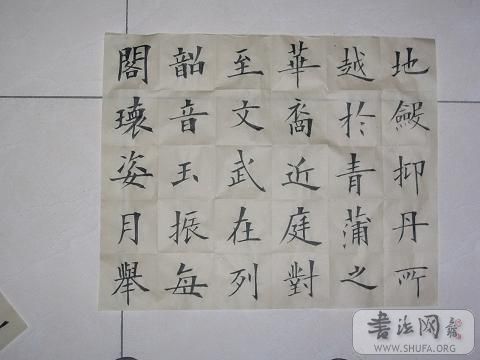 閣瓌姿月舉
韶音玉振每
至文武在列
華裔近庭對
越於青蒲之
地斂抑丹所
書法网
WWW.SHUFA.ORG